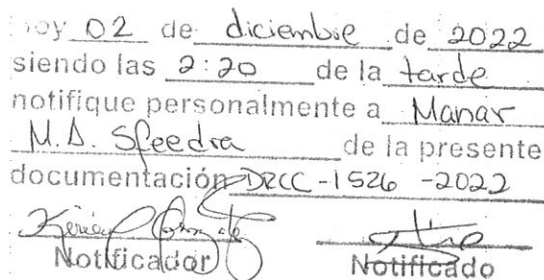 oy 02 de diciembre de 2022
siendo las 2:20 de la tarde
notifique personalmente a Manar
M.D. Sfeedra de la presente
documentación DRCC-1526-2022
Notificador Notificado